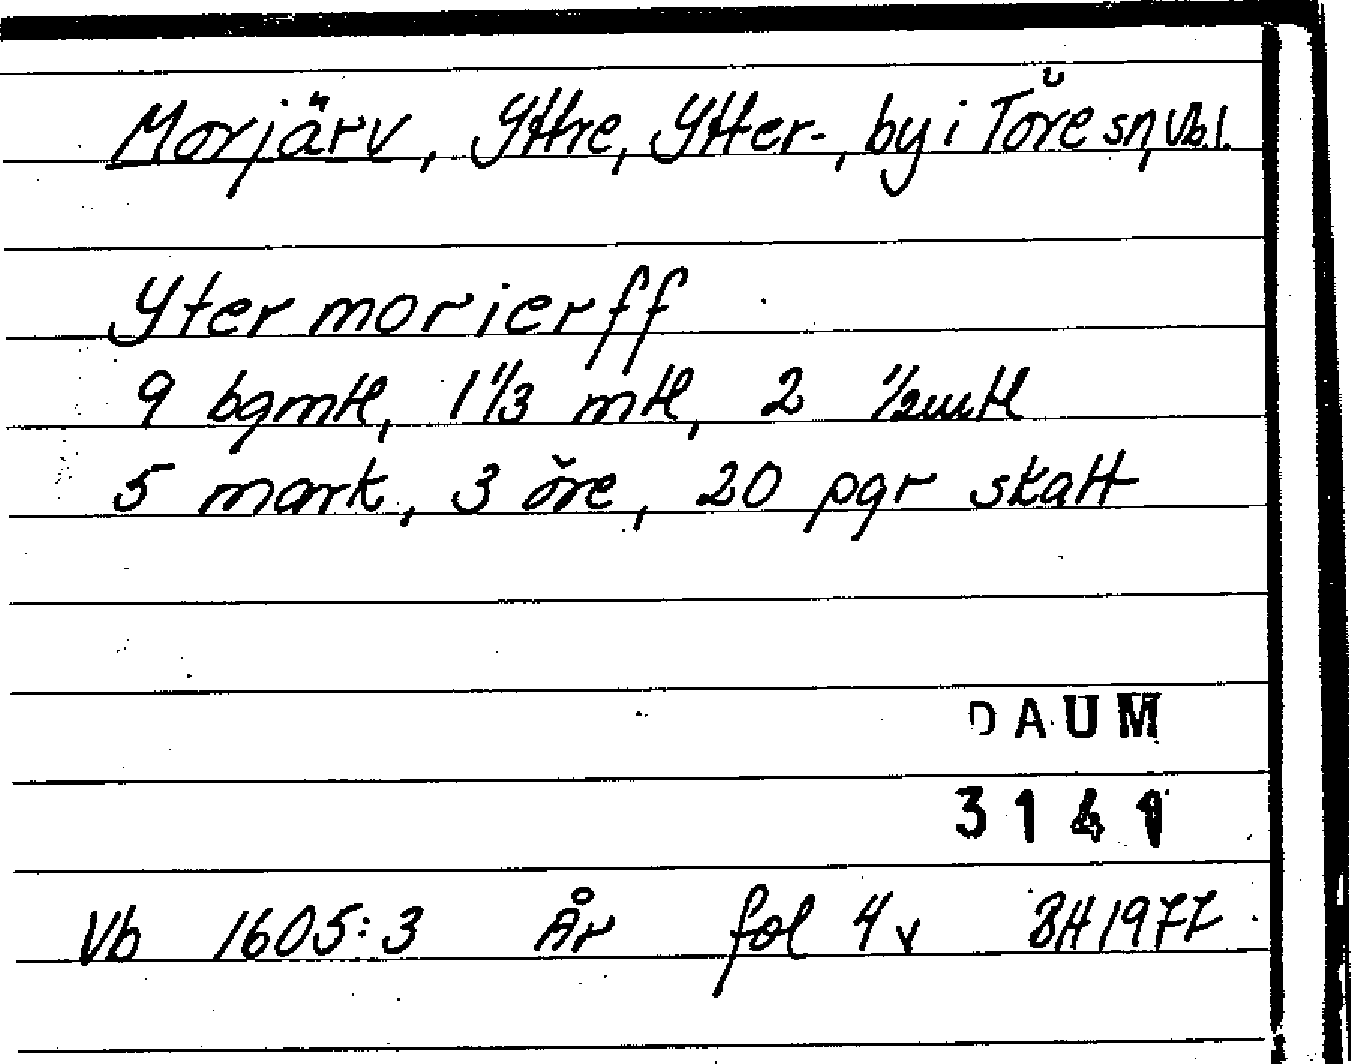 Morjärv, Yttre, Ytter-, by i Töre sn, Vb.l.
Yter morierff
9 bgmtl, 1 1/3 mtl, 2 1/2 mtl
5 mark, 3 öre, 20 pgr skatt
DAUM
3141
Vb 1605:3 År fol 4 v BH 1977